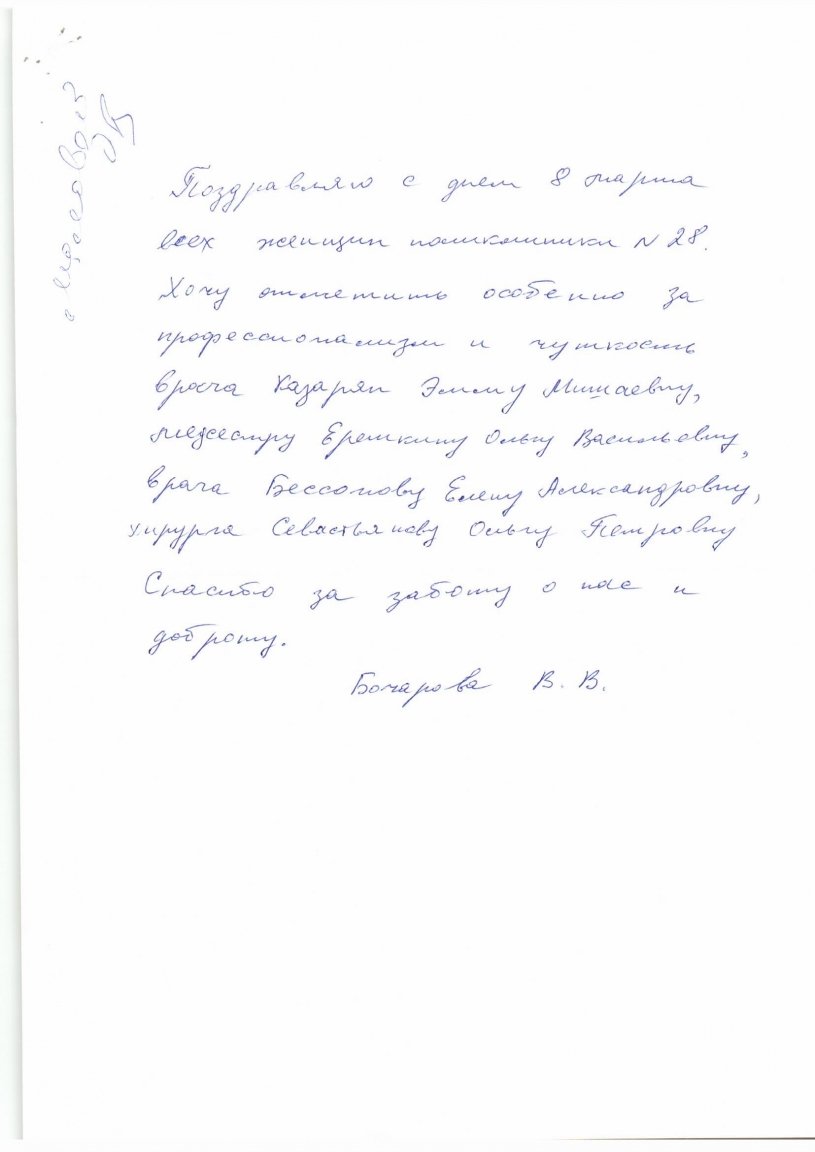 Поздравляю с днем 8 марта
всех женщин поликлиники N 28.
Хочу отметить особенно за
профессионализм и чуткость
врача Казарян Эмму Мишаевну,
медсестру Ерешкину Ольгу Васильевну,
врача Бессонову Елену Александровну,
хирурга Севастьянову Ольгу Петровну
Спасибо за заботу о нас и
доброту.
Бочарова В. В.